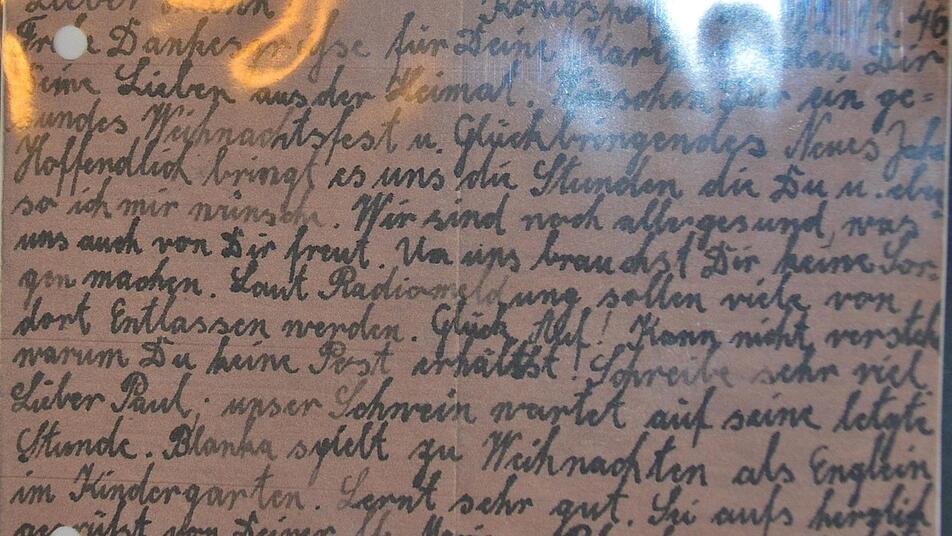 Lieber
Frohe für Deine Dir
Deine Lieben aus der Heimat. Wünschen Dir ein ge=
sundes Weihnachtsfest u. Glückbringendes Neues Jahr
Hoffendlich bringt es uns die Stunden die Du u. eben
so ich mir wünsche. Wir sind noch alle gesund, was
uns auch von Dir freut. Um uns brauchst Dir keine Sor=
gen machen. Laut Radiomeldung sollen viele von
dort Entlassen werden. Glück Auf! Kann nicht versteh
warum Du keine Post erhältst! Schreibe sehr viel.
Lieber Paul, unser Schwein wartet auf seine letzte
Stunde. Blanka spielt zu Weihnachten als Englein
im Kindergarten. Lernt sehr gut. Sei aufs herzlich
gegrüßt von Deiner